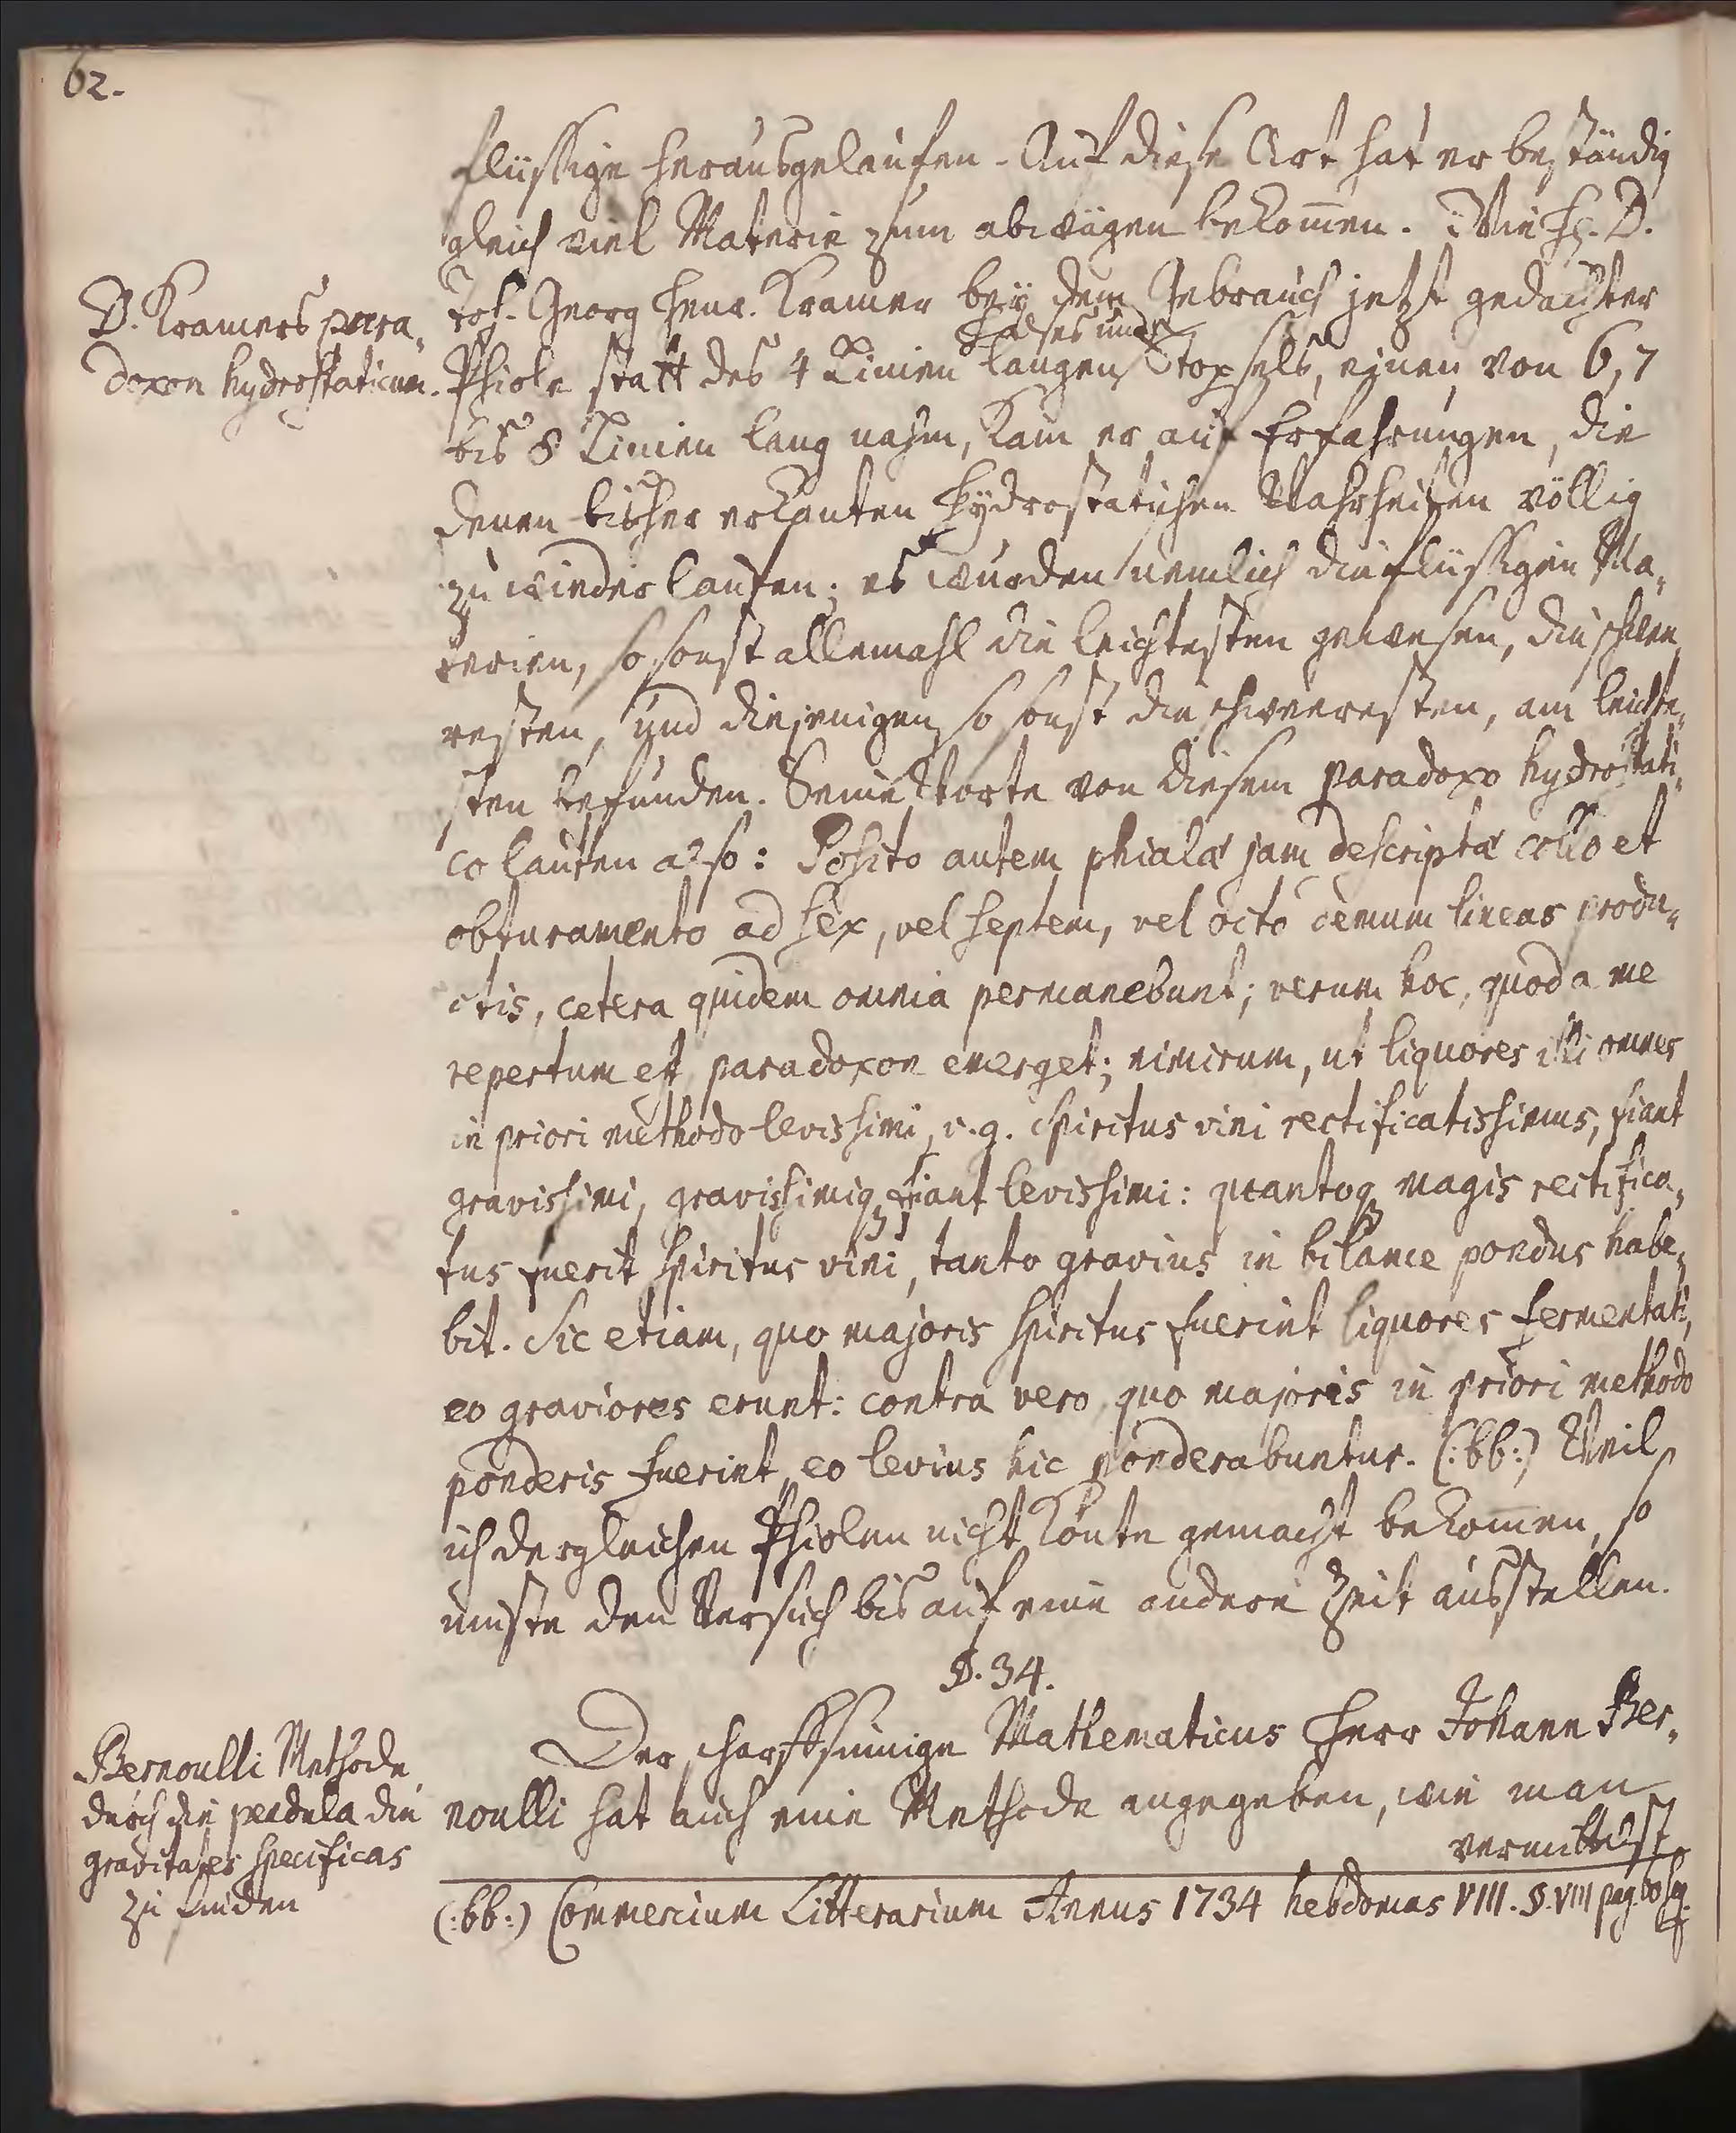 62.
flüssige herausgelaufen. Auf diese Art hat er beständig
gleich viel Materie zum abwägen bekom̅en. Wie H. D.
D. Kramers para„
doxon hydrostaticum.
Joh. Georg Henr. Kramer beÿ dem Gebrauch jetzt gedachter
Halses und
Phiole statt des 4 Linien langen Stopsels, einen von 6, 7
bis 8 Linien lang nahm, kam er auf Erfahrungen, die
denen bisher erkanten Hÿdrostatischen Wahrheiten völlig
zu wieder lauffen; es wurden nemlich die flüssigen Ma„
terien, so sonst allemahl die leichtesten gewesen, die schwe„
resten, und diejenigen so sonst die schweresten, am leichte„
sten befunden. Seine Worte von diesem paradoxo hydrostati„
co lauten also: Posito autem phiala jam descripta collo et
obturamento ad sex, vel septem, vel octo demum lineas produ„
ctis, cetera quidem omnia permanebunt; verum hoc, quod a me
repertum est, paradoxon emerget; nimirum, ut liquores illi omnes
in priori methodo levissimi, v. g. Spiritus vini rectificatissimus, fiant
gravissimi, gravissimiq; fiant levissimi: quantoq; magis rectifica„
tus fuerit spiritus vini, tanto gravius in bilance pondus habe„
bit. Sic etiam, quo majoris spiritus fuerint liquores fermentati,
eo graviores erunt: contra vero, quo majoris in priori methodo
ponderis fuerint, eo levius hic ponderabuntur. (:bb:) Weil
ich dergleichen Phiolen nicht konte gemacht bekom̅en, so
muste den Versuch bis auf eine andere Zeit ausstellen.
§. 34.
Bernoulli Methode
durch die pendula die
gravitates specificas
zu finden
Der scharffsinnige Mathematicus Herr Johann Ber„
noulli hat auch eine Methode angegeben, wie man
vermittelst
(:bb:) Commercium Litterarium Annus 1734 hebdomas VIII. §. VIII pag. 60 seq.